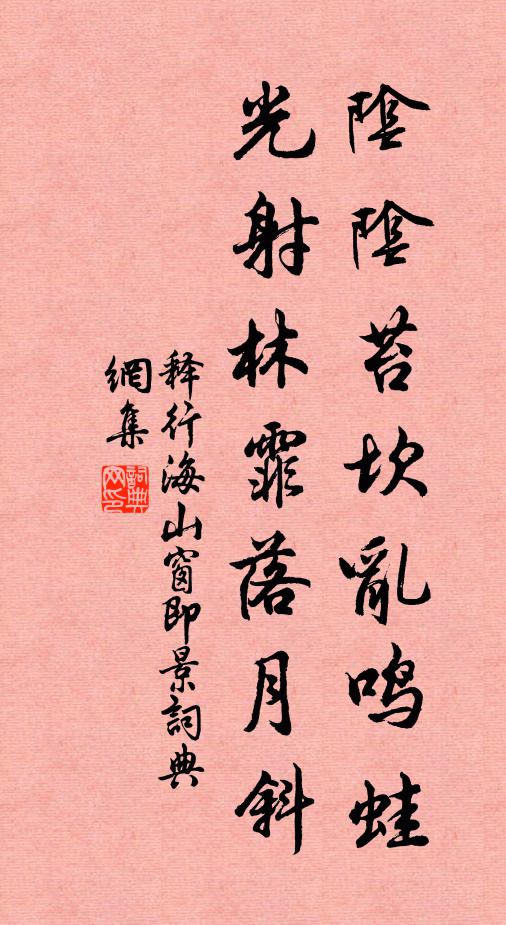 陰陰苔坎亂鳴蛙
光射林霏落月斜
釋行海山窗即景詞典
網集
詞典
网印